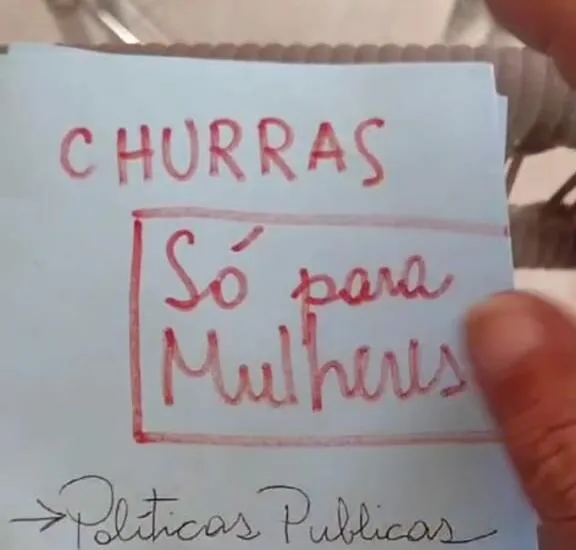 CHURRAS
Só para
Mulheres
→ Políticas Publicas